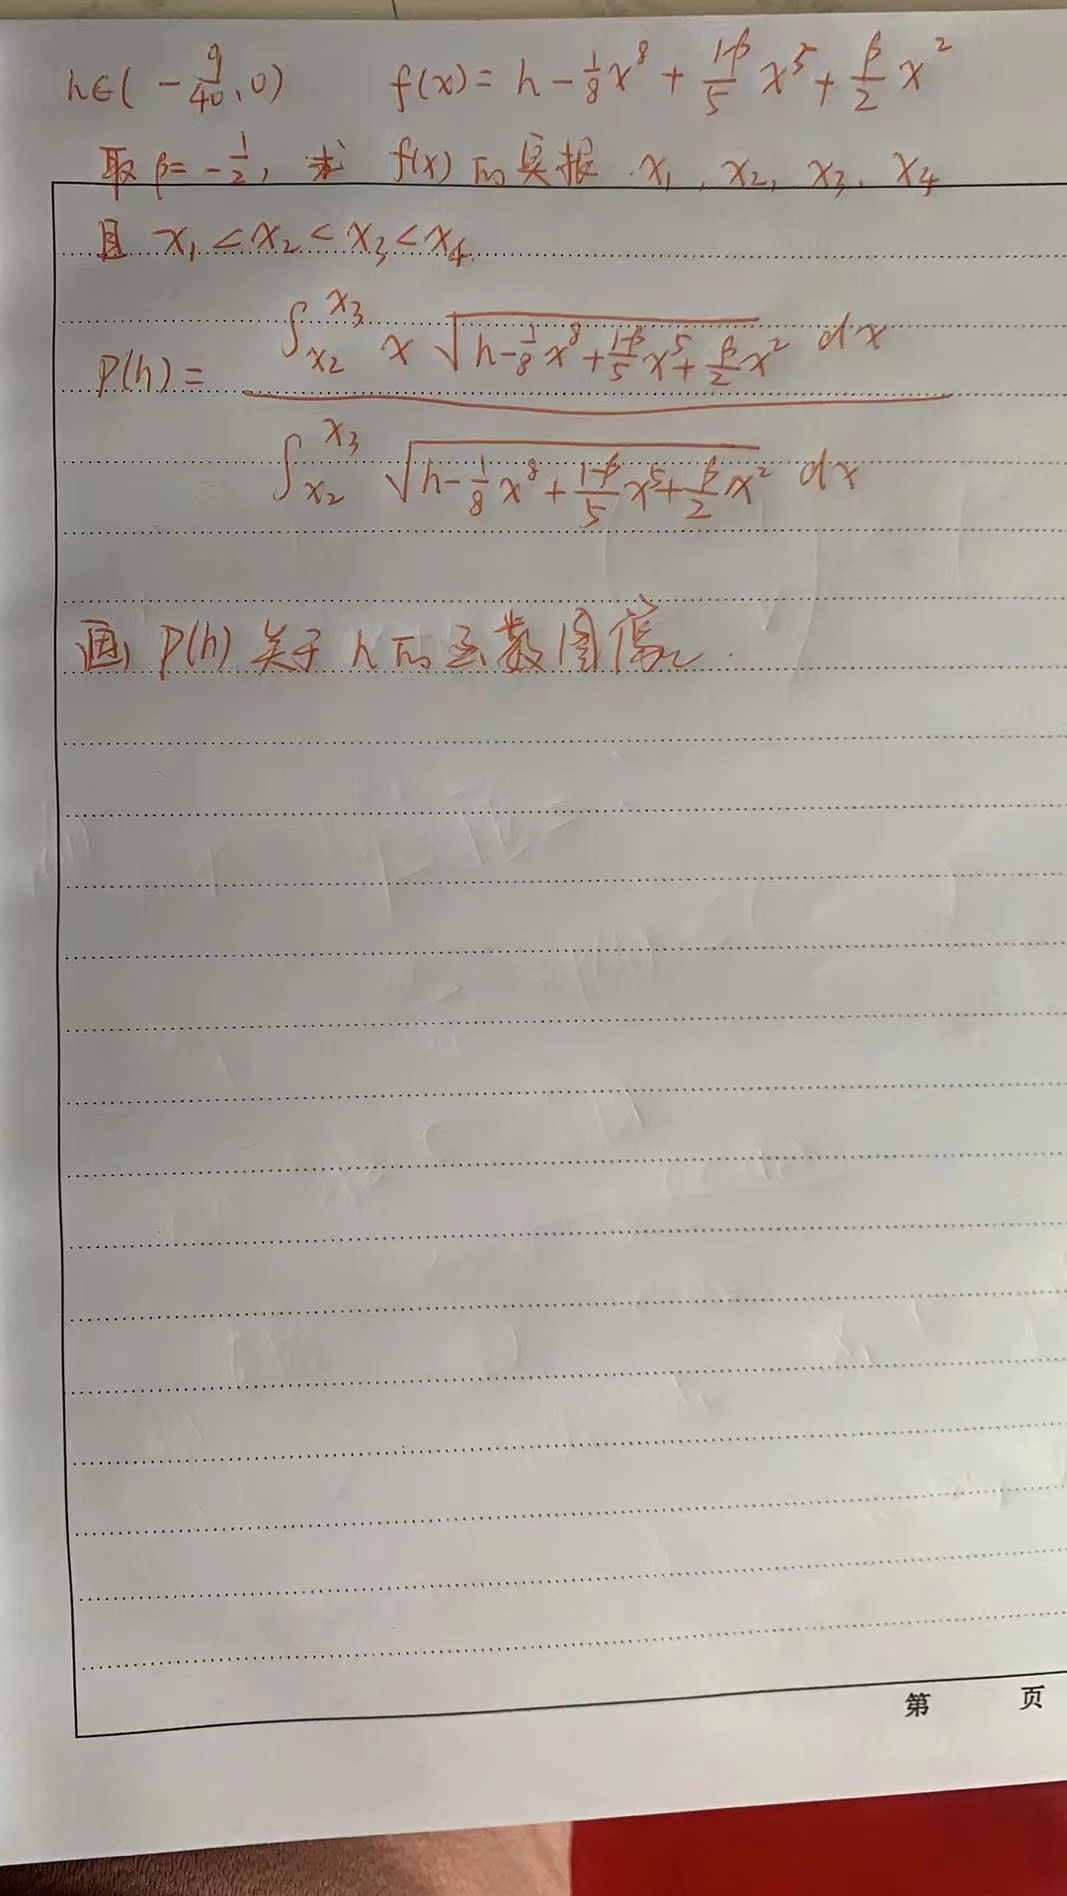 h∈(-9/40, 0)   f(x) = h - 1/8 x^8 + (1-β)/5 x^5 + β/2 x^2
取 β = -1/2, 求 f(x) 的实根 x_1, x_2, x_3, x_4
且 x_1 < x_2 < x_3 < x_4.
P(h) = ∫_{x_2}^{x_3} x √(h - 1/8 x^8 + (1-β)/5 x^5 + β/2 x^2) dx / ∫_{x_2}^{x_3} √(h - 1/8 x^8 + (1-β)/5 x^5 + β/2 x^2) dx
画 P(h) 关于 h 的函数图像.
第 页